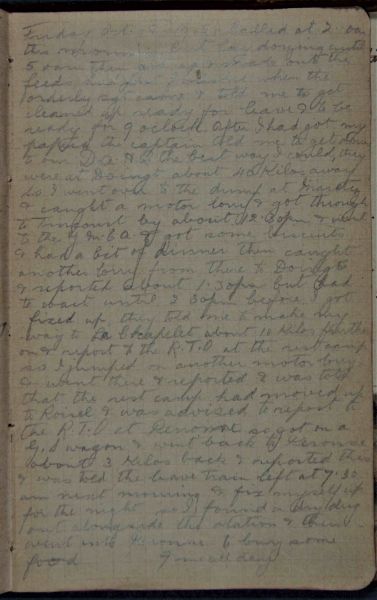 Friday Oct. called at 2 am
this morning but lay down until
5 am then made out the
feeds finished when the
orderly sgt came & told me to get
cleaned up ready for leave & to be
ready for 9 oclock. After I had got my
the captain told me to get down
to our D.H.Q the best way I could, they
were at Doingt about 40 kilos away
so I went over to the dump at
& caught a motor lorry & got through
to Tincourt by about 12.30pm & went
to the Y.M.C.A. & got some biscuits
& had a bit of dinner then caught
another lorry from there to Doingt
& reported about 1.30pm but had
to wait until 2.30pm before I got
fixed up they told me to make my
way to La Chapelet about 10 kilos further
on & report to the R.T.O at the rest camp
so I jumped on another motor lorry
& went there & reported & was told
that the rest camp had moved up
to Roisel & was advised to report to
the R.T.O at Peronne so got on a
G.S wagon & went back to Peronne
about 3 kilos back & reported there
& was told the leave train left at 7.30
am next morning & fix myself up
for the night so I found a dug
out alongside the station & then
went into Peronne to buy some
food Fine all day